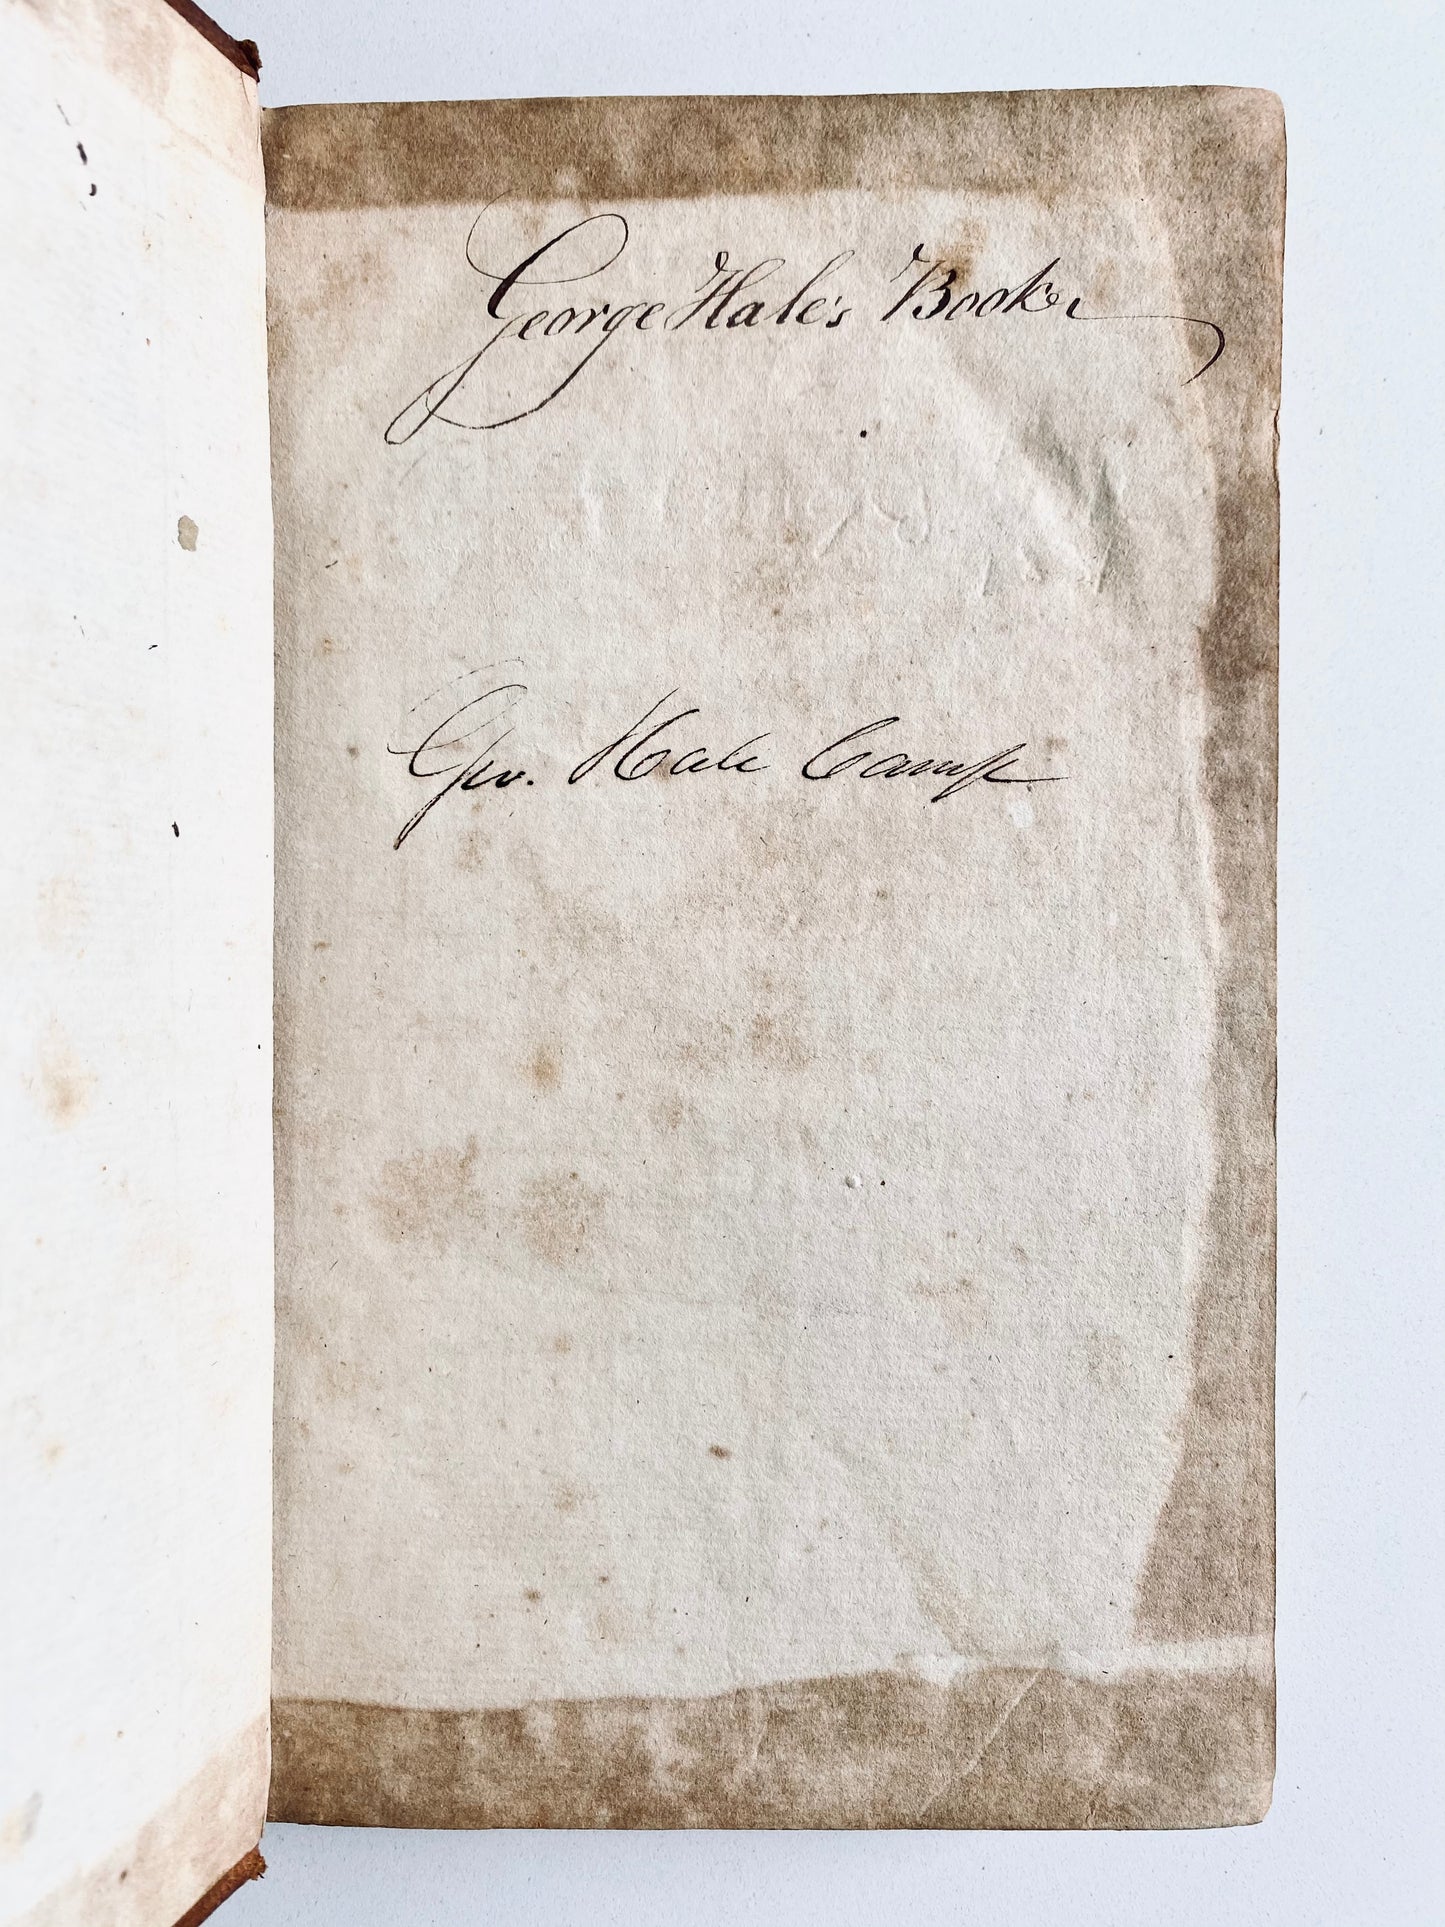 George Hale's Book
Geo. Hale Camp